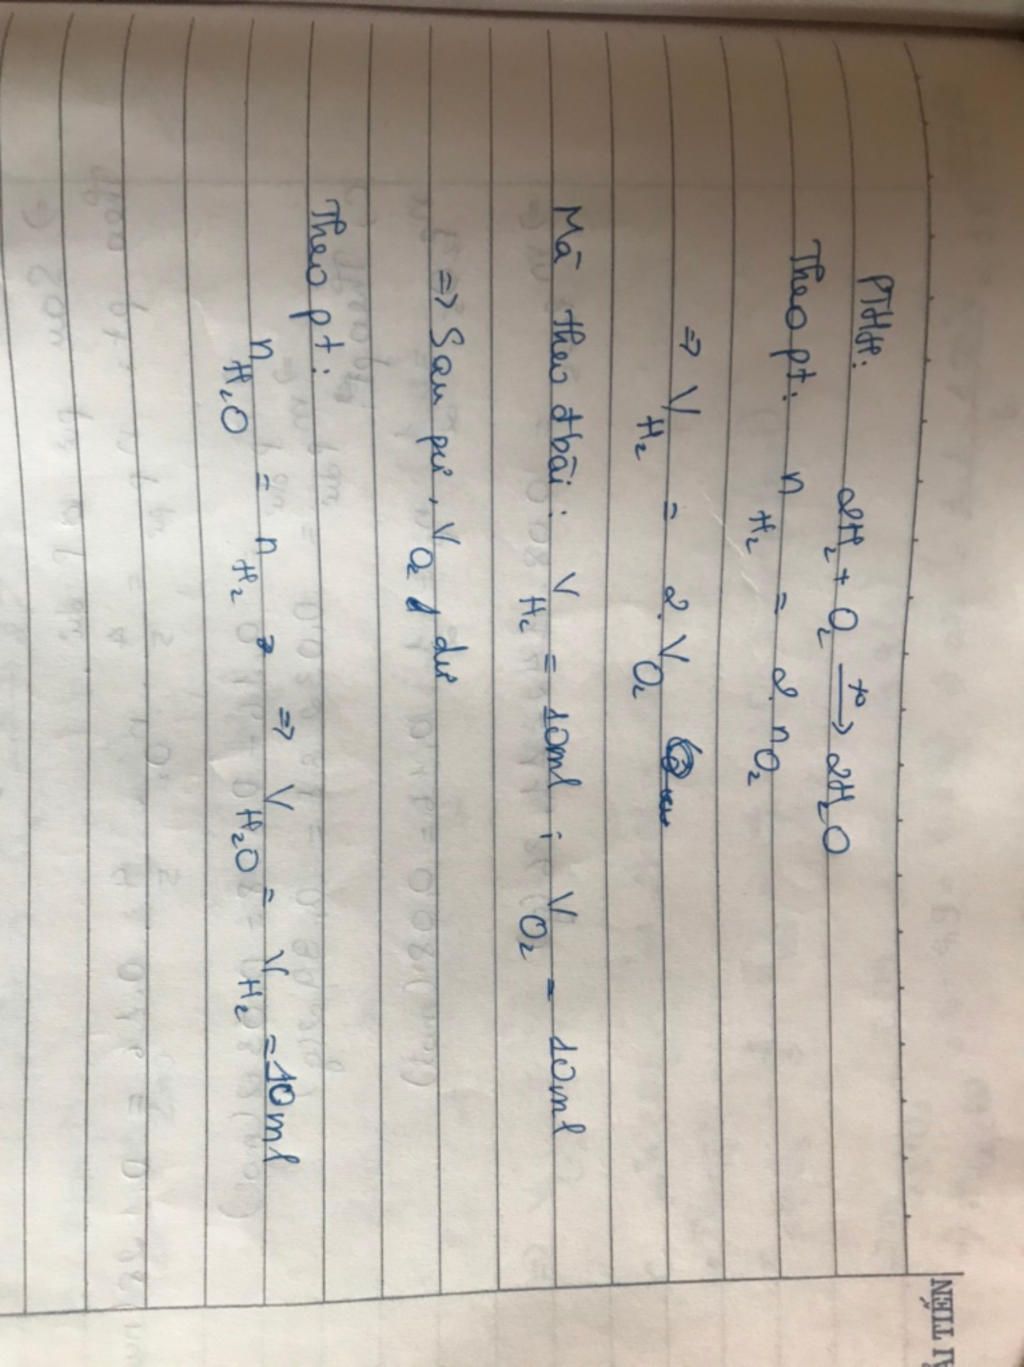 PTHH: 2H₂ + O₂ —t°→ 2H₂O
Theo pt: n H₂ = 2. n O₂
=> V H₂ = 2. V O₂
Mà theo đbài: V H₂ = 10ml ; V O₂ = 10ml
=> Sau pư, V O₂ dư
Theo pt:
n H₂O = n H₂ => V H₂O = V H₂ = 10ml
TIẾN